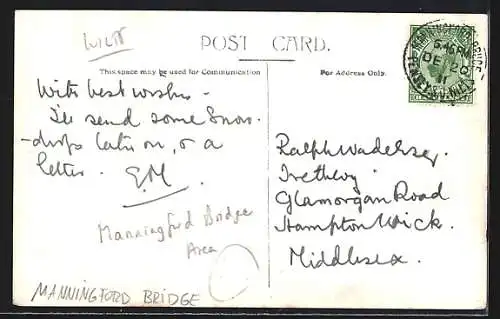 Wilts
POST CARD.
This space may be used for Communication
For Address Only.
With best wishes -
I'll send some Snow-
-drops later on, or a
letter. G.M.
Ralph Wadelsey.
Glamorgan Road
Hampton Wick.
Middlesex.
Manningford Bridge
Area
MANNINGFORD BRIDGE
5.45 PM
DE 20
11